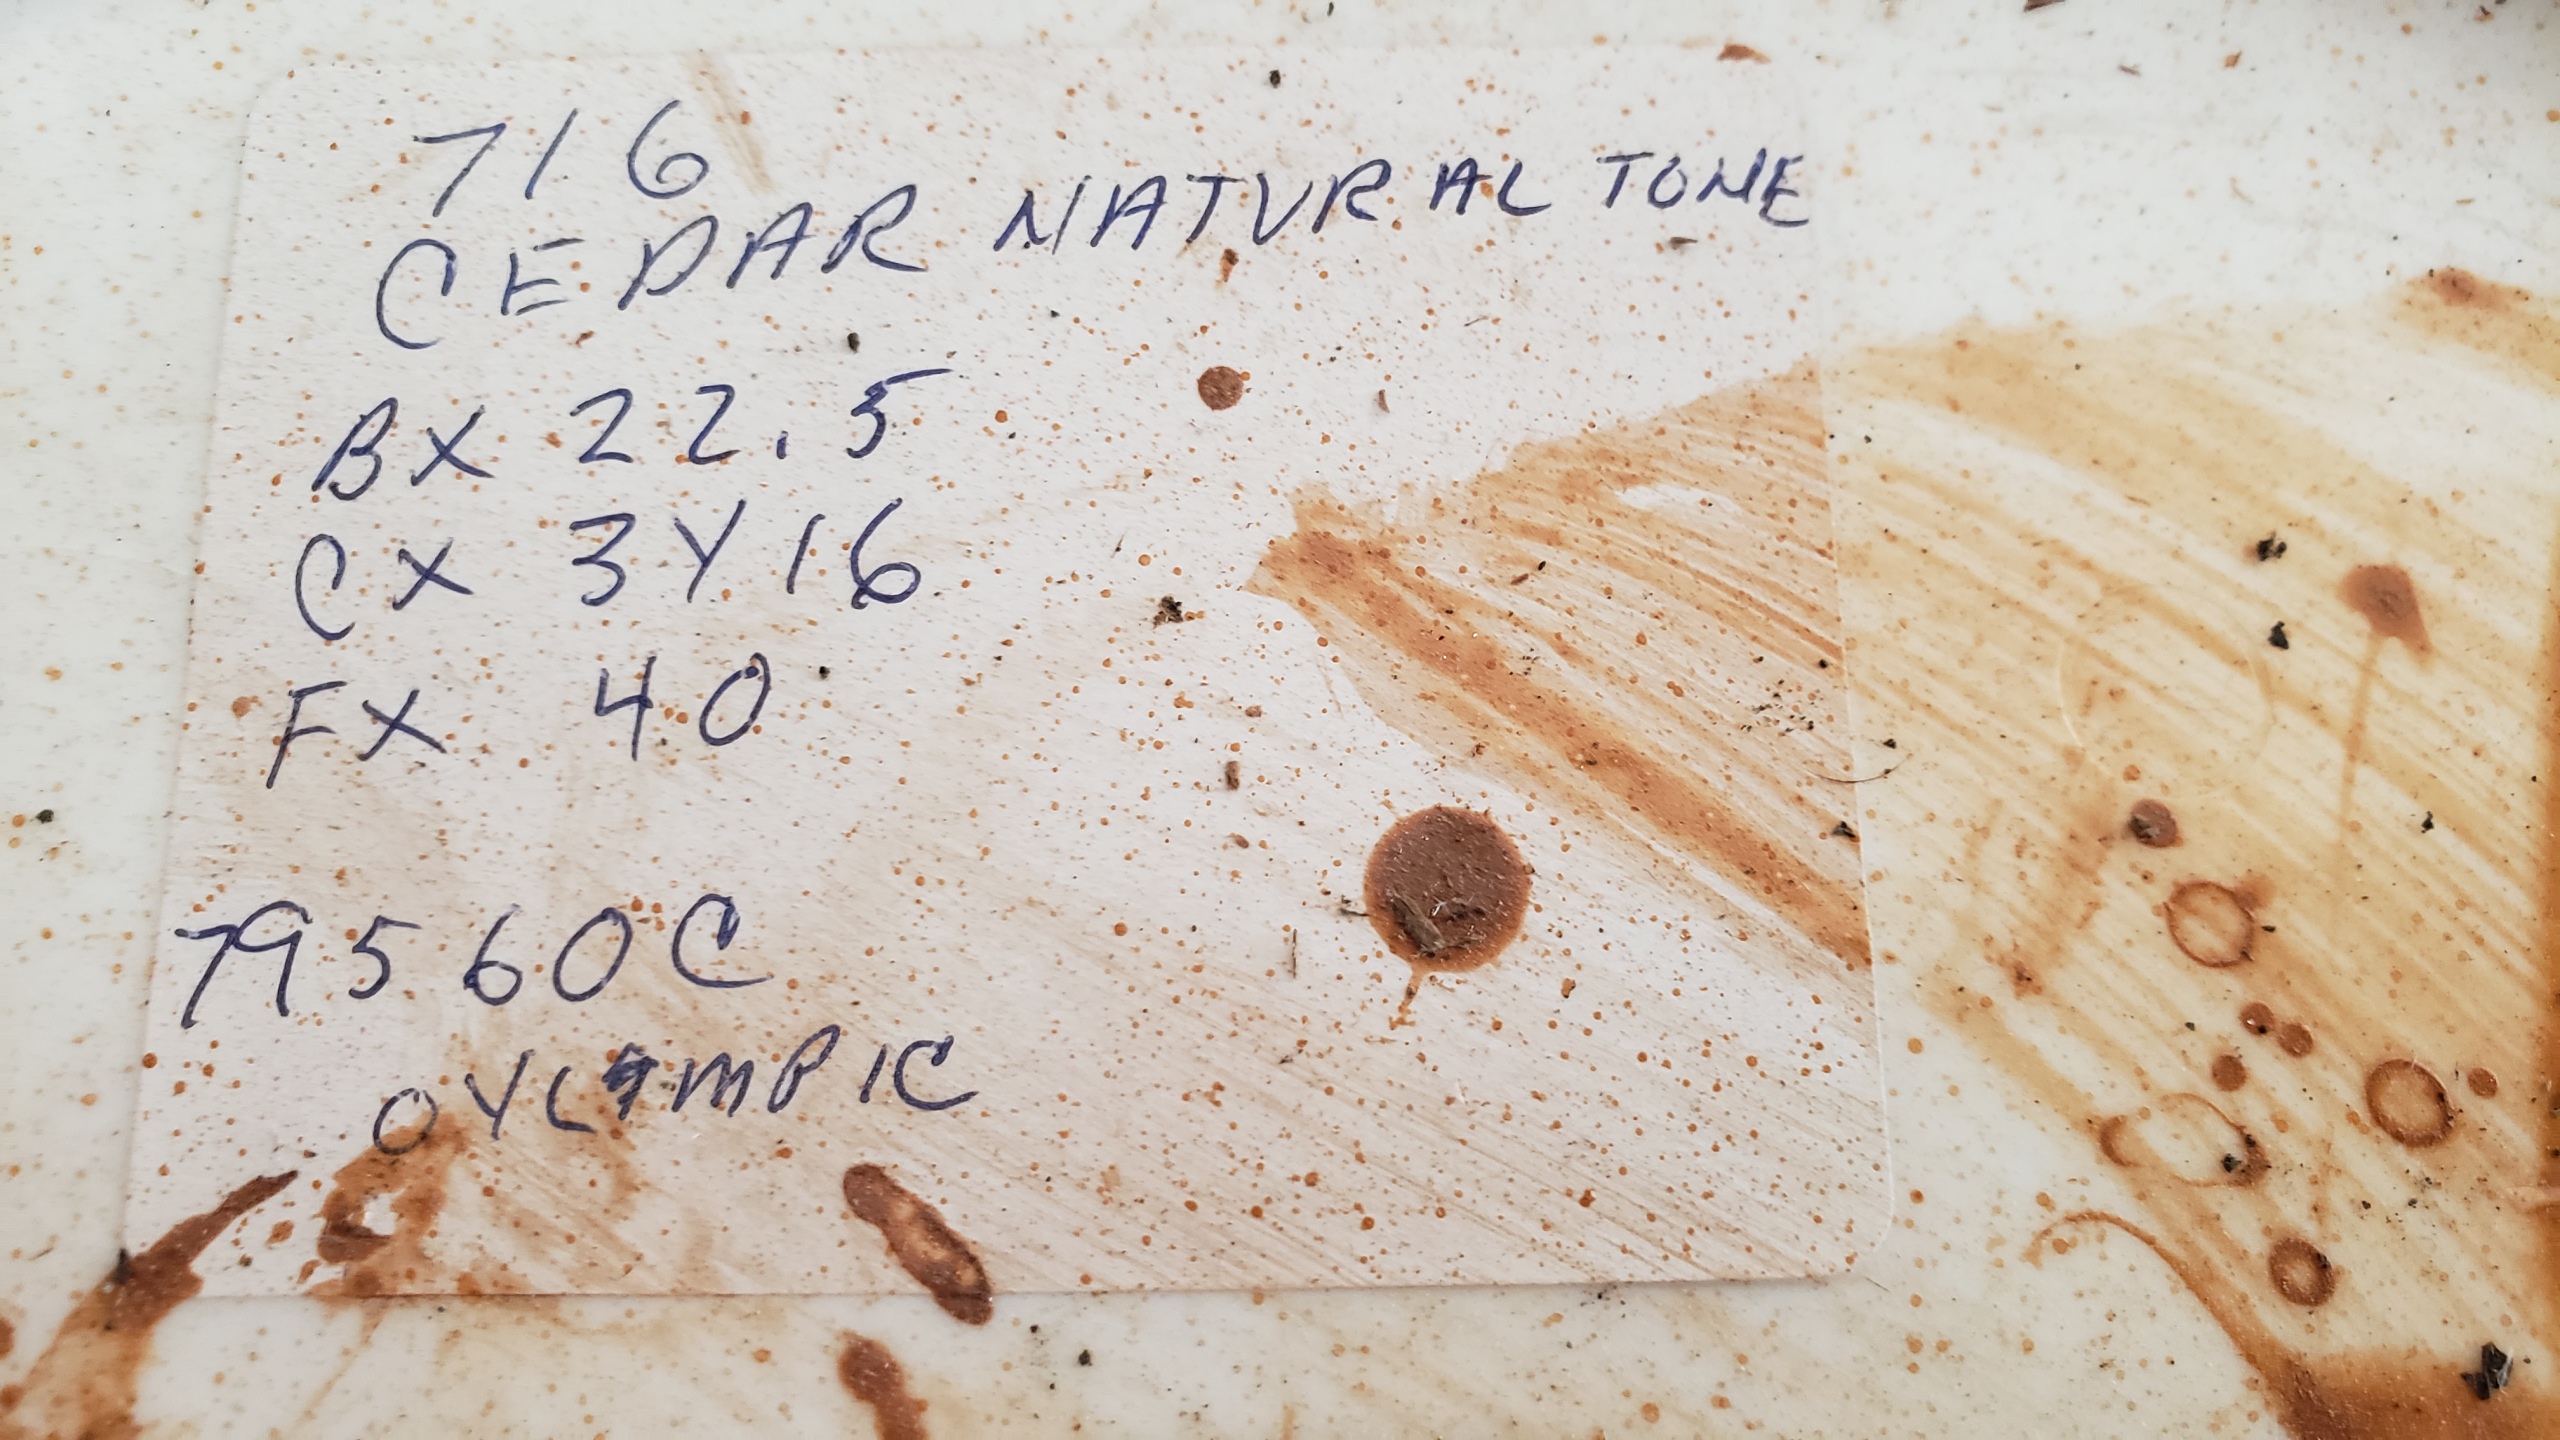 716
CEDAR NATURAL TONE
BX 22.5
CX 3Y16
FX 40
79560C